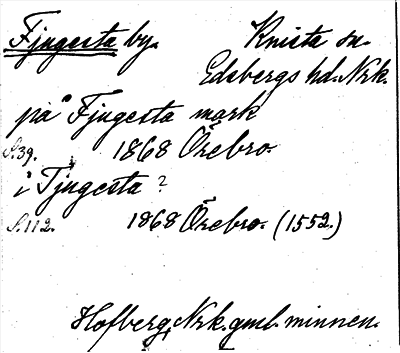 Fjugesta by. Knista sn.
Edsbergs hd. Nrk.
på Fjugesta mark
S.39. 1868 Örebro.
i Fjugesta?
S.112. 1868 Örebro. (1552.)
Hofberg, Nrk. gml. minnen.